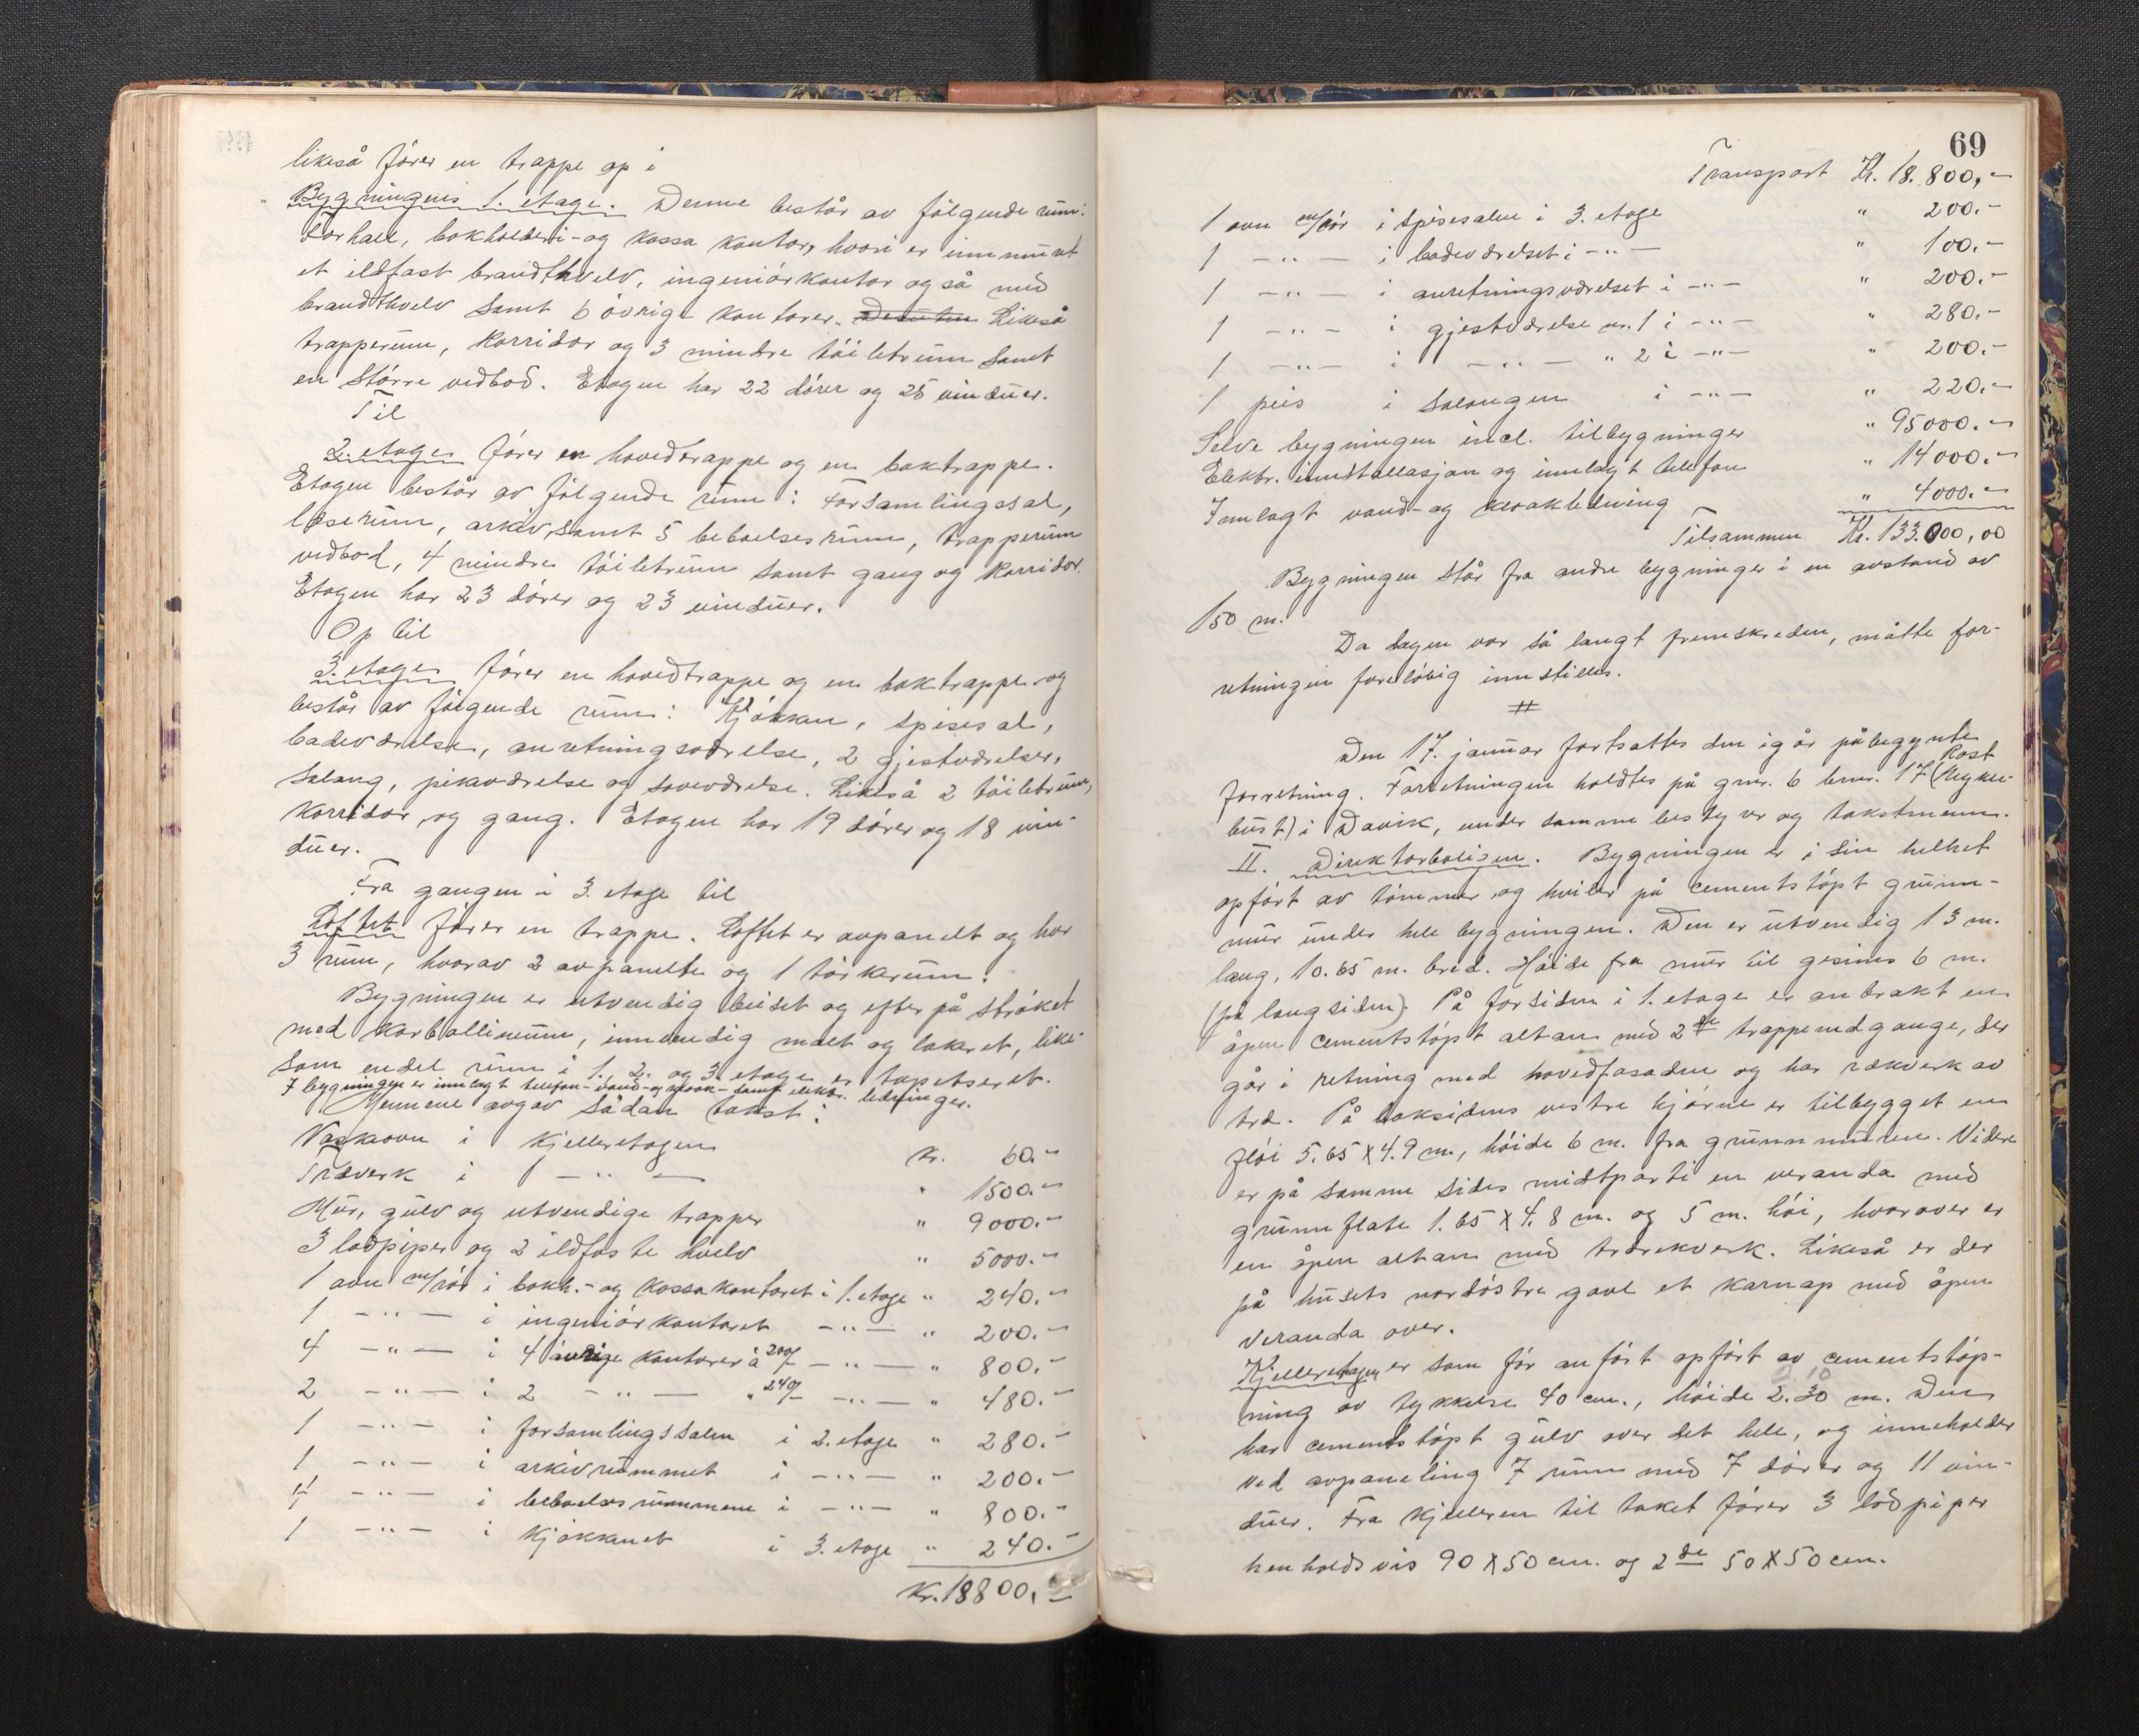 likeså fører en trappe op i
Bygningens 1. etage. Denne består av følgende rum:
Forhall, bokholderi- og kassa kontor, hvori er innmuret
et ildfast brandthvelv, ingeniørkontor også med
brandthvelv samt 6 øvrige kontorer. Desuten Likeså
trapperum, korridor og 3 mindre tóiletrum samt
en større vedbod. Etagen har 22 dører og 25 vinduer.
Til
2. etage fører en hovedtrappe og en baktrappe.
Etagen består av følgende rum: Forsamlingssal,
læserum, arkiv, samt 5 beboelsesrum, trapperum
vedbod, 4 mindre tóiletrum samt gang og korridor.
Etagen har 23 dører og 23 vinduer.
Op til
3. etage fører en hovedtrappe og en baktrappe og
består av følgende rum: Kjøkken, spisesal,
badeværelse, anretningsværelse, 2 gjesteværelser,
salong, pikeværelse og soveværelse. Likeså 2 tóiletrum,
korridor, og gang. Etagen har 19 dører og 18 vin-
duer.
Fra gangen i 3. etage til
Loftet fører en trappe. Loftet er avpanelt og har
3 rum, hvorav 2 avpanelte og 1 tørkerum.
Bygningen er utvendig beiset og efter på strøket
med karbollineum, innvendig malt og lakeret, like-
som endel rum i 1. 2. og 3. etage er tapetseret.
I bygningen er innlagt telefon- vand- og kloak- samt elektr. ledninger.
Mennene avgav sådan takst:
Vaskeovn i kjelleretagen Kr. 60.-
Træverk i -"- " 1500.-
Mur, gulv og utvendige trapper " 9000.-
3 lødpiper og 2 ildfaste hvelv " 5000.-
1 ovn m/rør i bokh.- og kassakontoret i 1. etage " 240.-
1 -"- i ingeniørkontoret -"- " 200.-
4 -"- i 4 øvrige kontorer à 200/- -"- " 800.-
2 -"- i 2 -"- " 240/- -"- " 480.-
1 -"- i forsamlingssalen i 2. etage " 280.-
1 -"- i arkivrummet i -"- " 200.-
4 -"- i beboelsesrummene i -"- " 800.-
1 -"- i kjøkkenet i 3. etage " 240.-
Kr. 18800,-
69
Transport Kr. 18.800,-
1 ovn m/rør i spisesalen i 3. etage " 200.-
1 -"- i badeværelset i -"- " 100.-
1 -"- i anretningsværelset i -"- " 200.-
1 -"- i gjesteværelse nr. 1 i -"- " 280.-
1 -"- i -"- " 2 i -"- " 200.-
1 peis i salongen i -"- " 220.-
Selve bygningen incl. tilbygninger " 95000.-
Elektr. innstallasjon og innlagt telefon " 14000.-
Innlagt vand- og kloakledning " 4000.-
Tilsammen Kr. 133.000,00
Bygningen står fra andre bygninger i en avstand av
150 m.
Da dagen var så langt fremskreden, måtte for-
retningen foreløbig innstilles.
#
Den 17. januar fortsattes den igår påbegynte
forretning. Forretningen holdtes på gnr. 6 bnr. 17 (Rost
bust) i Davik, under samme bestyrer og takstmenn.
II. Direktørboligen. Bygningen er i sin helhet
opført av tømmer og hviler på cementstøpt grunn-
mur under hele bygningen. Den er utvendig 13 m.
lang, 10.65 m. bred. Høide fra mur til gesims 6 m.
(på langsiden). På forsiden i 1. etage er anbrakt en
åpen cementstøpt altan med 2de trappenedgange, der
går i retning med hovedfasaden og har rækverk av
træ. På baksidens vestre hjørne er tilbygget en
fløi 5.65 x 4.9 m., høide 6 m. fra grunnmuren. Videre
er på samme sides midtparti en veranda med
grunnflate 1.65 x 4.8 m. og 5 m. høi, hvorover er
en åpen altan med trærekverk. Likeså er der
på husets nordøstre gavl et karnap med åpen
veranda over.
Kjelleretagen er som før anført opført av cementstøp-
ning av tykkelse 40 cm., høide 2.30 m. Den
har cementstøpt gulv over det hele, og inneholder
ved avpaneling 7 rum med 7 dører og 11 vin-
duer. Fra kjelleren til taket fører 3 lødpiper
henholdsvis 90 x 50 cm. og 2de 50 x 50 cm.